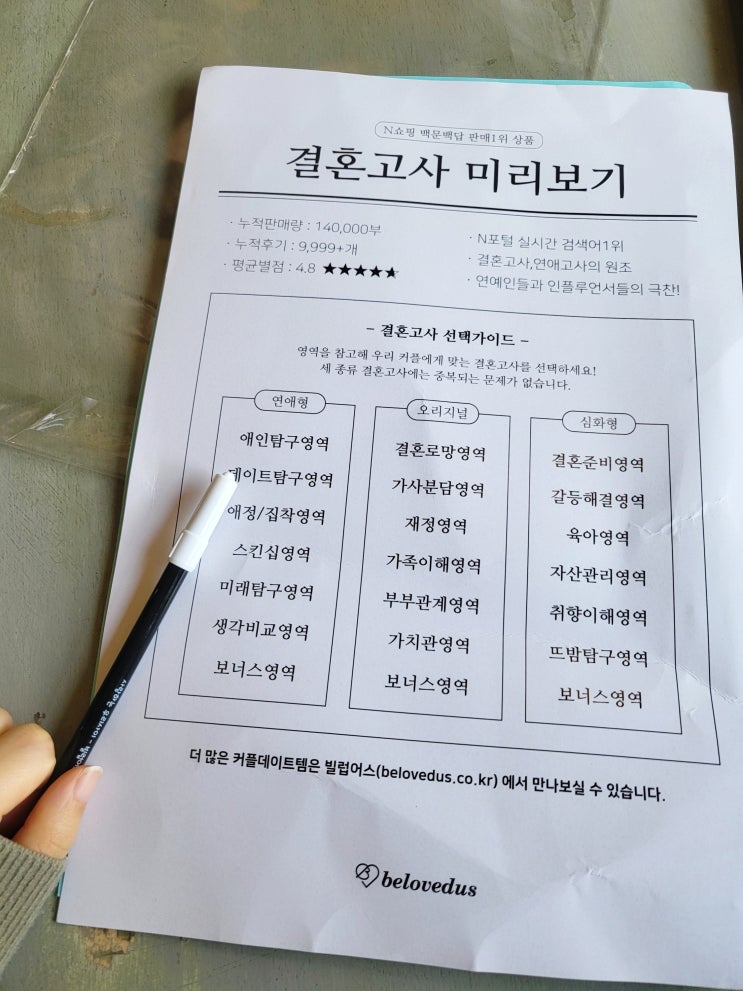 N쇼핑 백문백답 판매1위 상품
결혼고사 미리보기
· 누적판매량 : 140,000부
· 누적후기 : 9,999+개
· 평균별점 : 4.8 ★★★★★
· N포털 실시간 검색어1위
· 결혼고사,연애고사의 원조
· 연예인들과 인플루언서들의 극찬!
- 결혼고사 선택가이드 -
영역을 참고해 우리 커플에게 맞는 결혼고사를 선택하세요!
세 종류 결혼고사에는 중복되는 문제가 없습니다.
연애형
애인탐구영역
데이트탐구영역
애정/집착영역
스킨십영역
미래탐구영역
생각비교영역
보너스영역
오리지널
결혼로망영역
가사분담영역
재정영역
가족이해영역
부부관계영역
가치관영역
보너스영역
심화형
결혼준비영역
갈등해결영역
육아영역
자산관리영역
취향이해영역
뜨밤탐구영역
보너스영역
더 많은 커플데이트템은 빌럽어스(belovedus.co.kr) 에서 만나보실 수 있습니다.
belovedus